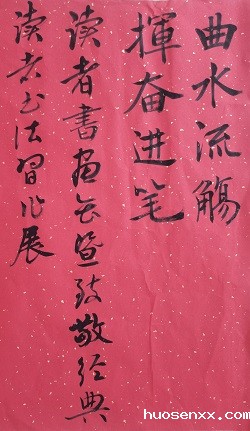 曲水流觴
揮奋进笔
读者書畫会暨致敬经典
读者书法習作展
huosenxx.com